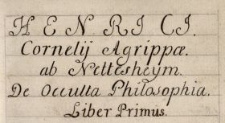 HENRICI.
Cornelij Agrippæ.
ab Nettesheym.
De Occulta Philosophia.
Liber Primus.